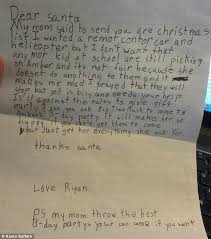 Dear santa
My mom said to send you are christmas
list I wanted a remot contor car and
helicopter but I don't want that
any mor kid at school are still picking
on Amber and its not fair because she
doesnt do anything to them and it
makes me mad I prayed that they will
stop but god is bisy and needs your help
Is it against the rules to give gift
early? Can you ask Big Time Rush to come to
Amber's B-day party It will makes her so
happy If you cant get them to come
Just get her everything she ask for.
thanks santa
Love Ryan
PS my mom throw the best
B-day partys your can come if you want
© Karen Suffern